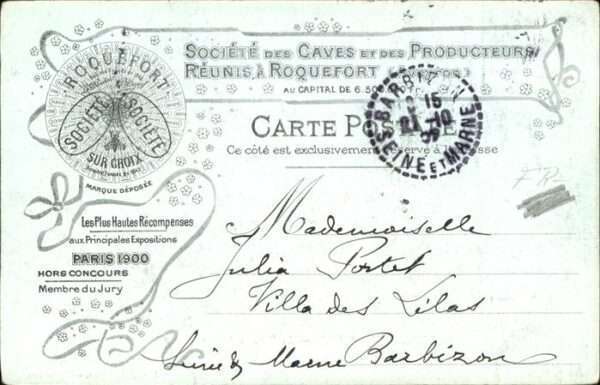 SOCIÉTÉ DES CAVES ET DES PRODUCTEURS
RÉUNIS À ROQUEFORT
AU CAPITAL DE 6.50
ROQUEFORT
SOCIÉTÉ
SOCIÉTÉ
SUR CROIX
MARQUE DÉPOSÉE
BARBIZ
15
21 10
SEINE ET MARNE
CARTE PO
Ce côté est exclusivement réservé à l'a esse
Les Plus Hautes Récompenses
aux Principales Expositions
PARIS 1900
HORS CONCOURS
Membre du Jury
Mademoiselle
Julia Portet
Villa des Lilas
Seine & Marne Barbizon